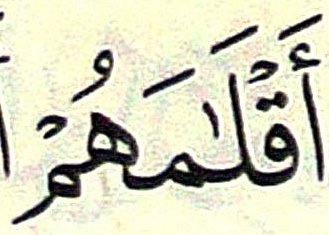 أَقْلَٰمَهُمْ